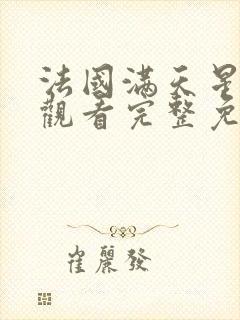 法國滿天星
觀看完整免
崔麗發